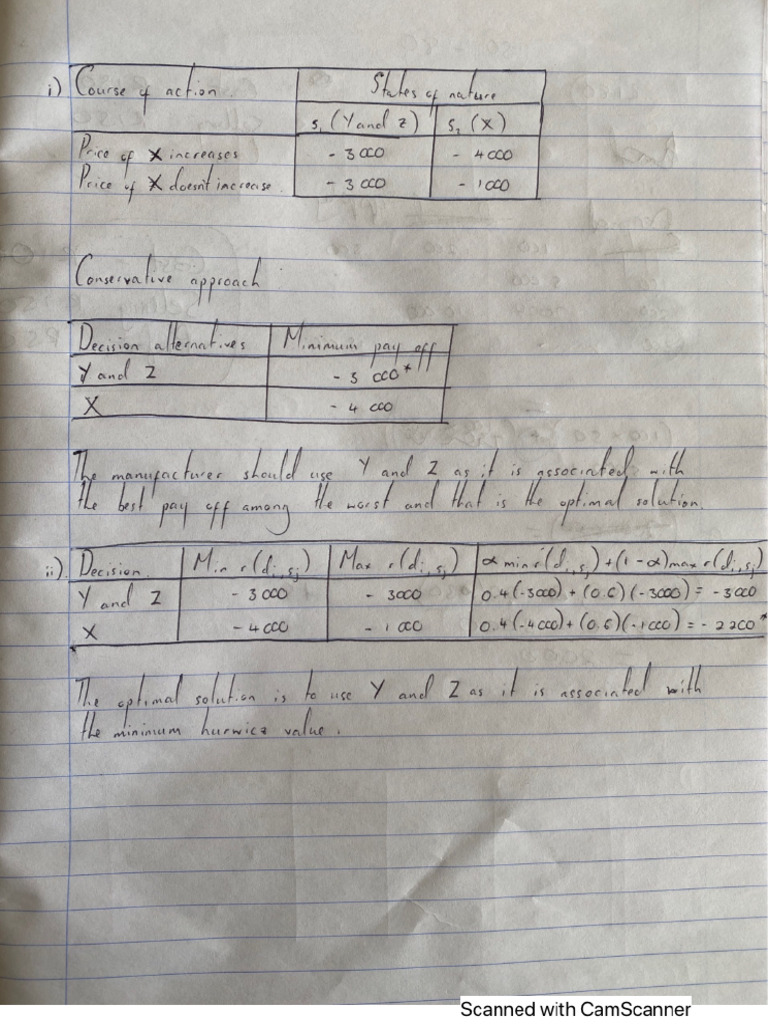 i) Course of action States of nature
s₁ (Y and Z) s₂ (X)
Price of X increases - 3 000 - 4 000
Price of X doesn't increase. - 3 000 - 1 000
Conservative approach
Decision alternatives Minimum pay off
Y and Z - 3 000*
X - 4 000
The manufacturer should use Y and Z as it is associated with
the best pay off among the worst and that is the optimal solution.
ii). Decision. Min r(di, sj) Max r(di, sj) α min r(di, sj) + (1 - α) max r(di, sj)
Y and Z - 3000 - 3000 0.4(-3000) + (0.6)(-3000) = - 3000
X - 4000 - 1000 0.4(-4000) + (0.6)(-1000) = - 2200*
The optimal solution is to use Y and Z as it is associated with
the minimum hurwicz value.
Scanned with CamScanner